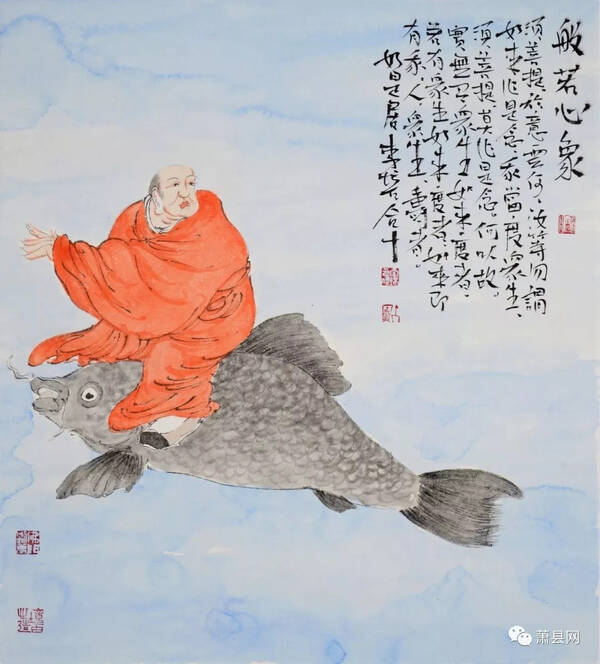 般若心象
須菩提於意雲何、汝等勿謂
如来作是念、我當度衆生、
須菩提莫作是念。何以故。
實無有衆生如来度者、
若有衆生如来度者、如来即
有我、人、衆生、壽者。
如是居李合十
萧县网